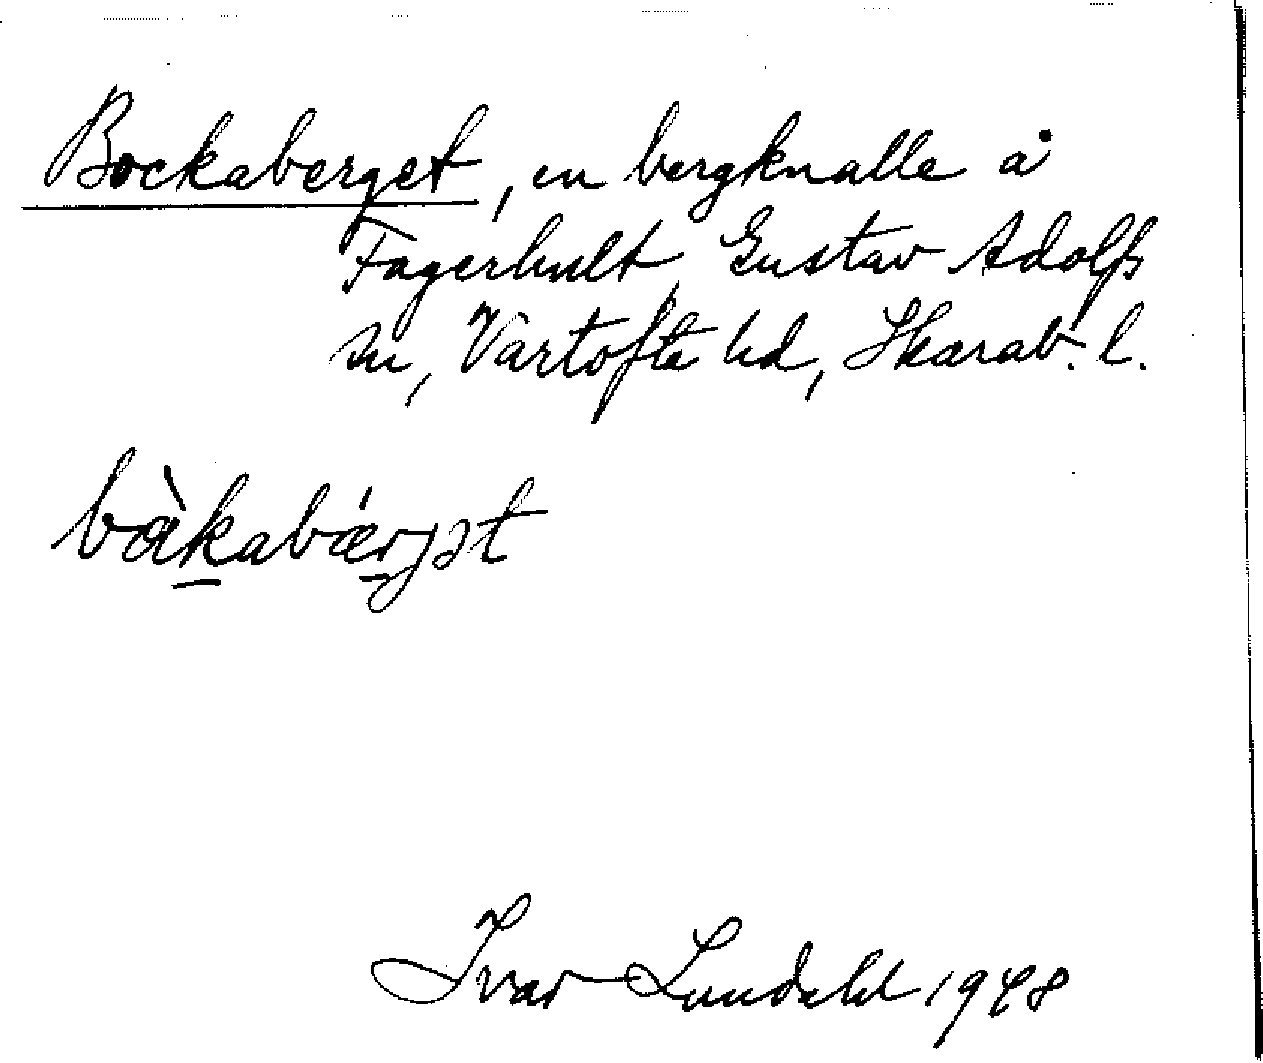 Bockaberget, en bergknalle å
Fagerhult, Gustav Adolfs
sn, Vartofte hd, Skarab. l.
bàkabǽrjət
Ivar Lundahl 1948